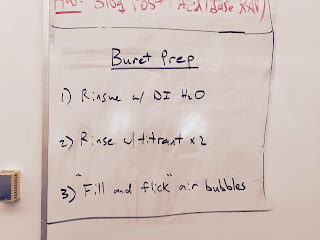 HW: Blog Post Acid/Base
Buret Prep
1) Rinsue w/ DI H₂O
2) Rinse w/titrant x2
3) "Fill and flick" air bubbles